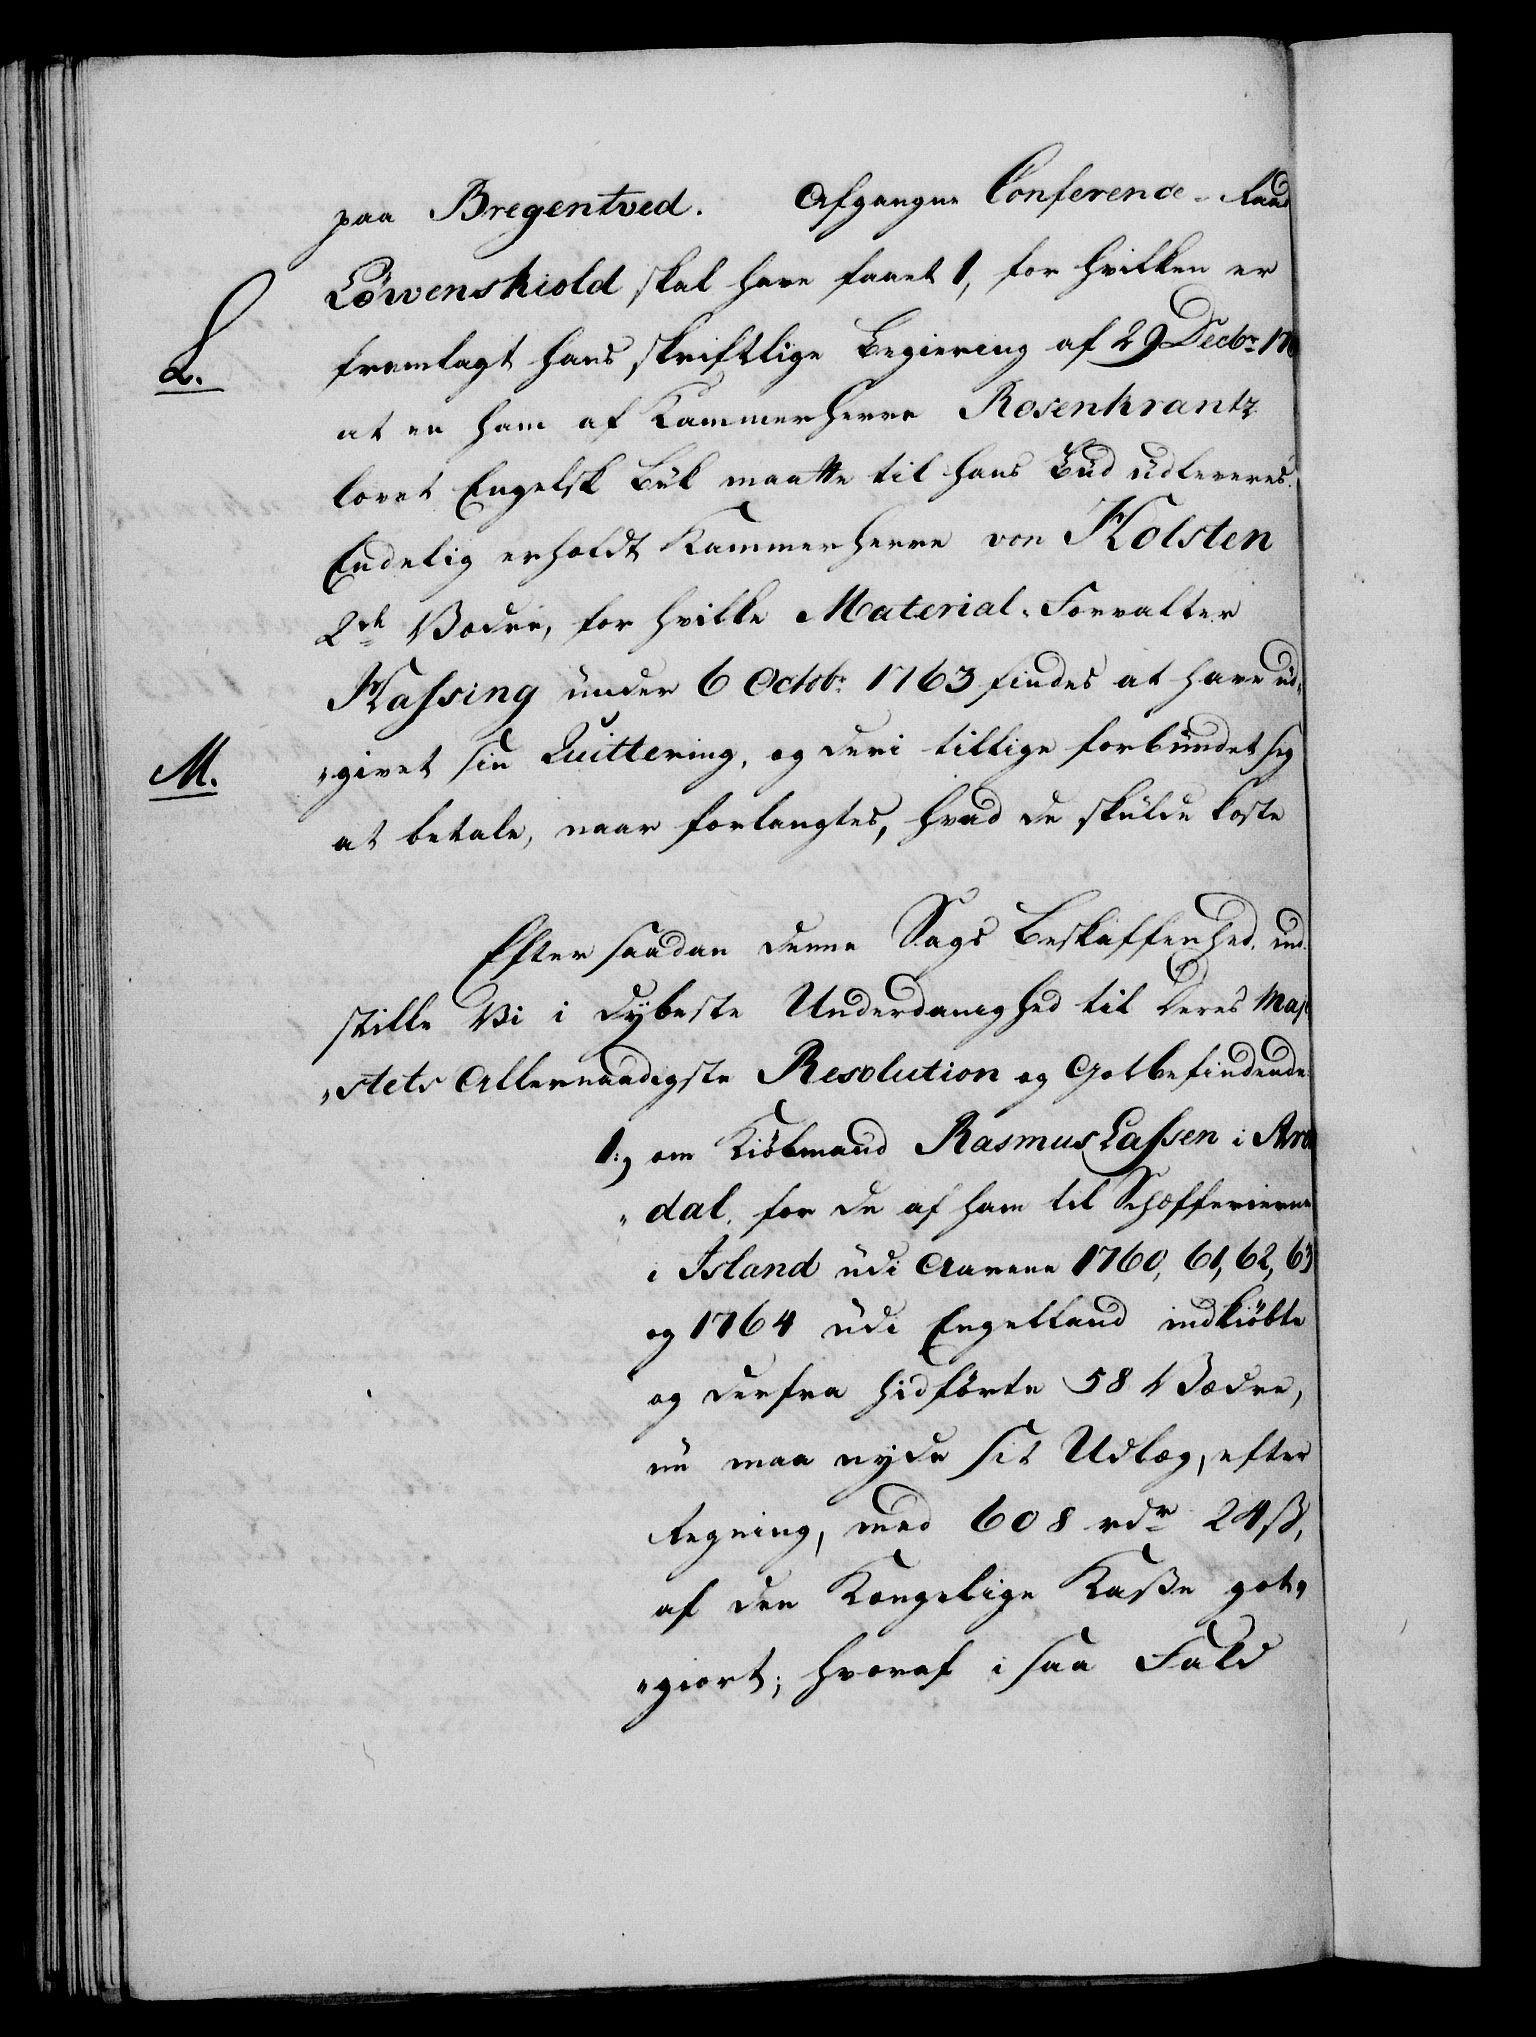 paa Bregentved. Afgangne Conference-Raad
Löwenskiold skal have faaet 1, for hvilken er
L. fremlagt hans skriftlige Begiering af 29 Decbr: 17
at en ham af Kammerherre Rosenkrantz
lovet Engelsk Buk maatte til hans Bud udleveres.
Endelig erholdt Kammerherre von Holsten
2de Vædre, for hvilke Material-Forvalter
Hassing under 6 Octobr: 1763 findes at have ud-
M. „givet sin Quittering, og deri tillige forbundet sig
at betale, naar forlangtes, hvad de skulde koste
Efter saadan denne Sags Beskaffenhed ind-
stille Vi i dybeste Underdanighed til Deres Maje
„stets Allernaadigste Resolution og Gotbefindende
1:, om Kiöbmand Rasmus Lassen i Aren
„dal, for de af ham til Schæfferierne
i Island udi Aarene 1760, 61, 62, 63
og 1764 udi Engelland indkiöbte
og derfra hidförte 58 Vædre,
nu maa nyde sit Udlæg, efter
Regning, med 608 rdr 24 ß,
af den Kongelige Kasse got„
„giort; hvoraf i saa Fald